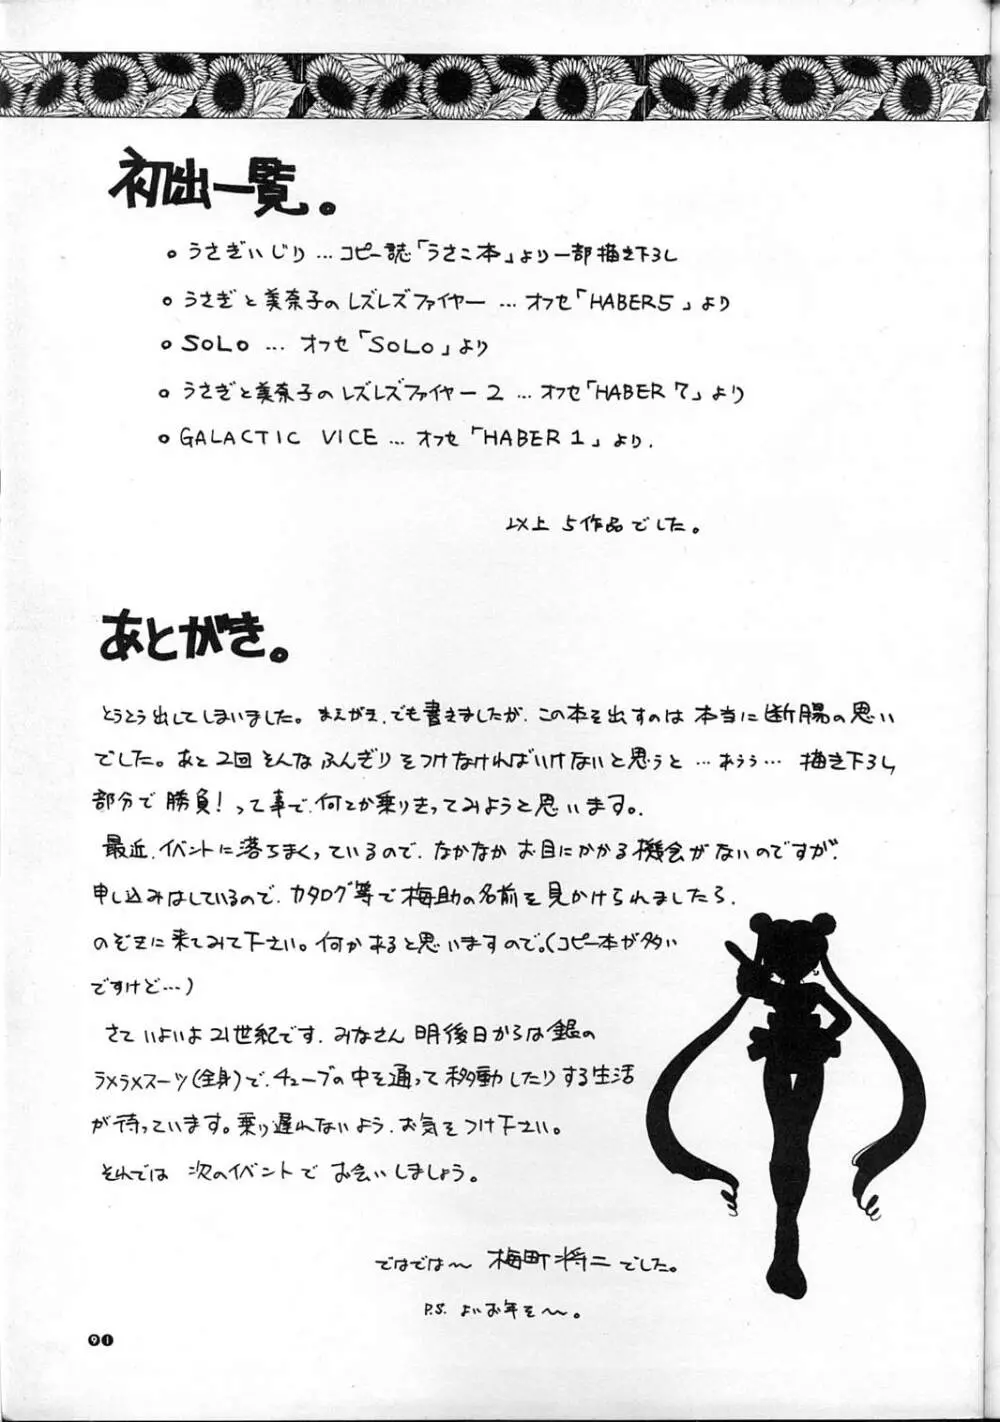 初出一覧。
○ うさぎいじり … コピー誌「うさこ本」より一部描き下ろし
○ うさぎと美奈子のレズレズファイヤー … オフセ「HABER5」より
○ SOLO … オフセ「SOLO」より
○ うさぎと美奈子のレズレズファイヤー2 … オフセ「HABER7」より
○ GALACTIC VICE … オフセ「HABER1」より.
以上 5作品でした。
あとがき。
とうとう出してしまいました。まえがき.でも書きましたが.この本を出すのは 本当に断腸の思い
でした。あと2回そんなふんぎりをつけなければいけないと思うと…あうう… 描き下ろし
部分で 勝負! って事で.何とか乗りきってみようと思います。
最近.イベントに落ちまくっているので.なかなか お目にかかる機会がないのですが.
申し込みはしているので.カタログ等で梅助の名前を見かけられましたら.
のぞきに来てみて下さい。何かあると思いますので。(コピー本が多い
ですけど…)
さて いよいよ21世紀です.みなさん 明後日からは銀の
ラメラメスーツ(全身)で.チューブの中を通って移動したりする生活
が待っています。乗り遅れないよう.お気をつけ下さい。
それでは 次のイベントで お会いしましょう。
ではでは〜 梅町将二でした。
P.S. よいお年を〜。
91